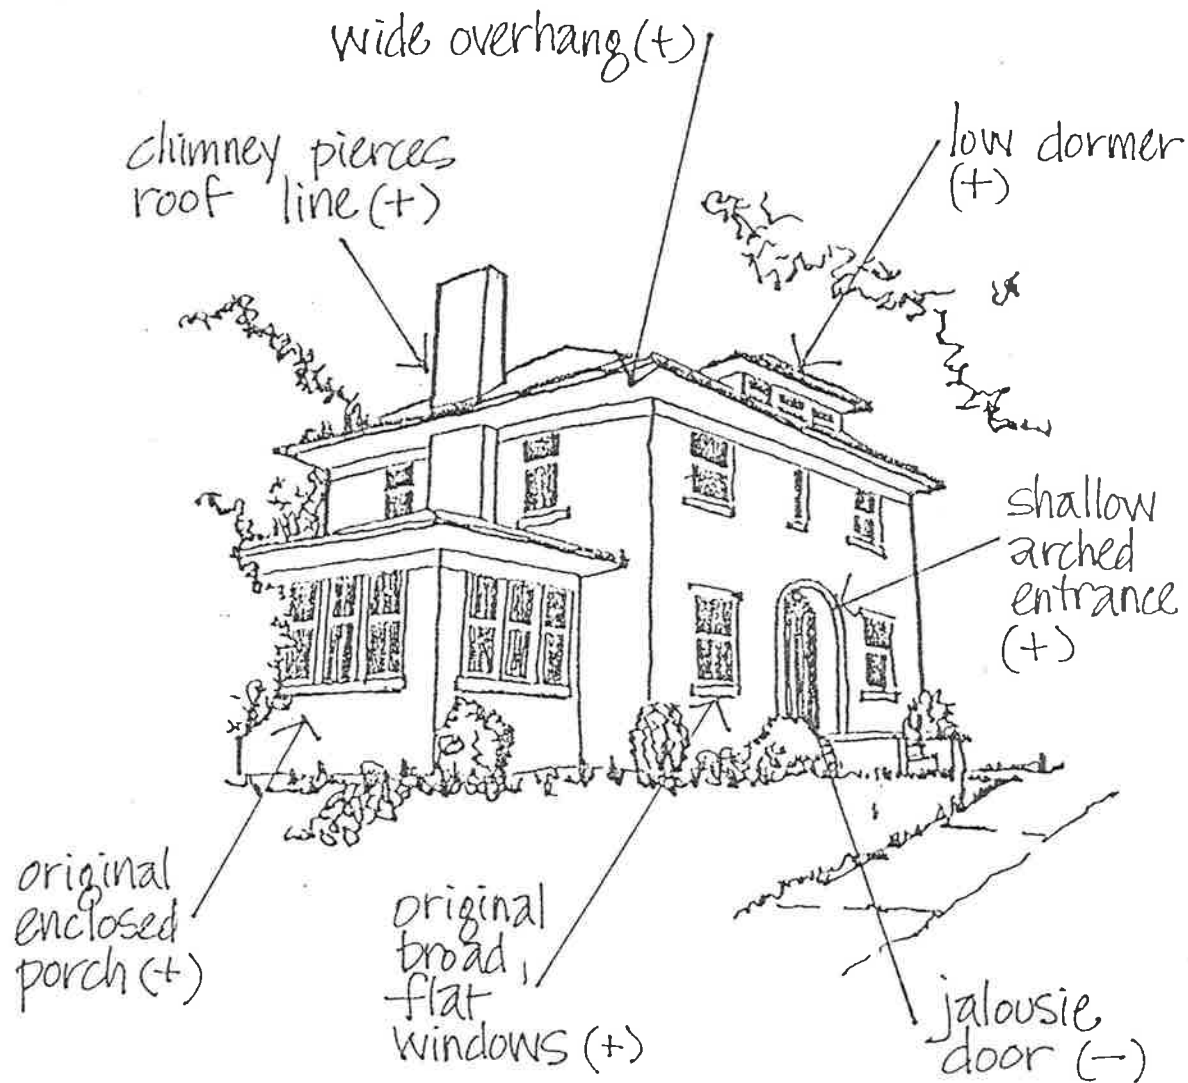 wide overhang (+)
chimney pierces
roof line (+)
low dormer
(+)
shallow
arched
entrance
(+)
original
enclosed
porch (+)
original
broad,
flat
windows (+)
jalousie
door (-)